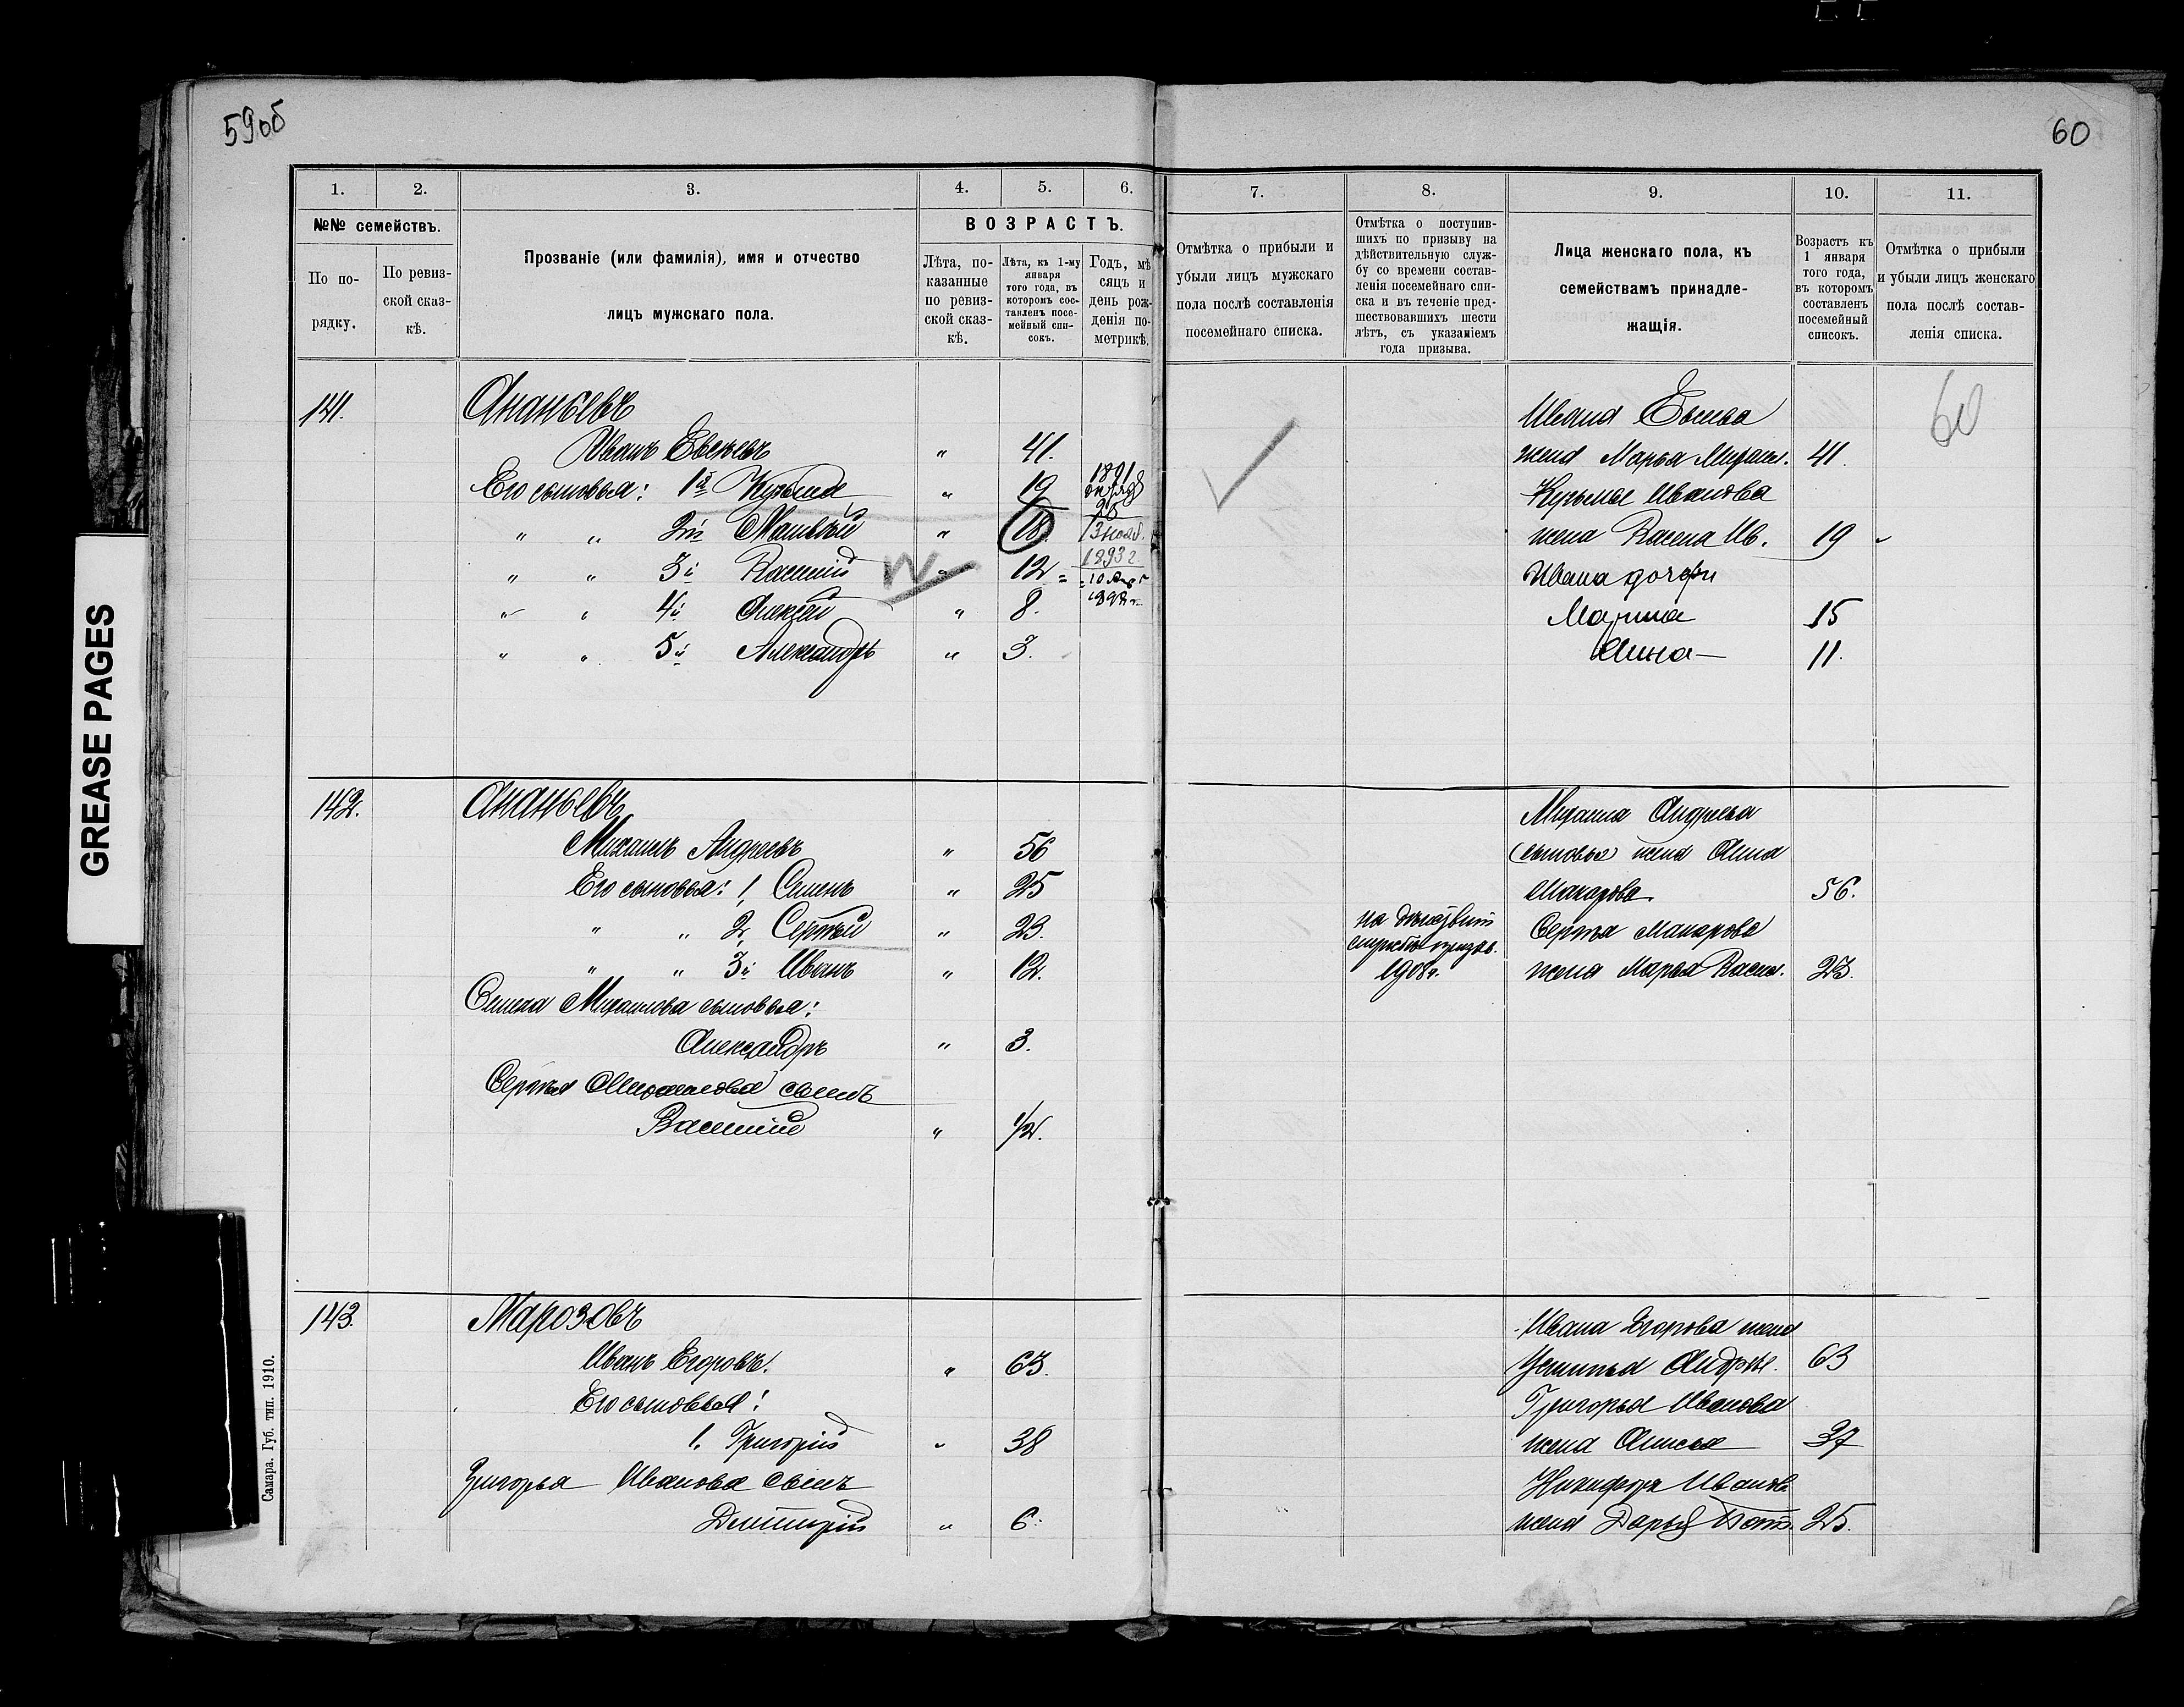 59об
60
GREASE PAGES
1. 2. 3. 4. 5. 6.
№№ семействъ.
По по-
рядку.
По ревиз-
ской сказ-
кѣ.
Прозваніе (или фамилія), имя и отчество
лицъ мужскаго пола.
ВОЗРАСТЪ.
Лѣта, по-
казанные
по ревиз-
ской сказ-
кѣ.
Лѣта, къ 1-му
января
того года, въ
которомъ сос-
тавленъ посе-
мейный спи-
сокъ.
Годъ, мѣ
сяцъ и
день рож-
денія по-
метрикѣ.
7. 8. 9. 10. 11.
Отмѣтка о прибыли и
убыли лицъ мужскаго
пола послѣ составленія
посемейнаго списка.
Отмѣтка о поступив-
шихъ по призыву на
дѣйствительную служ-
бу со времени состав-
ленія посемейнаго спи-
ска и въ теченіе пред-
шествовавшихъ шести
лѣтъ, съ указаніемъ
года призыва.
Лица женскаго пола, къ
семействамъ принадле-
жащія.
Возрастъ къ
1 января
того года,
въ которомъ
составленъ
посемейный
списокъ.
Отмѣтка о прибыли
и убыли лицъ женскаго
пола послѣ состав-
ленія списка.
141. Ананьевъ
Иванъ Евсеевъ " 41.
Его сыновья: 1й Кузьма " 19 1891
" " 2й Матвѣй " 18 13 нояб.
1893 г
" " 3й Василій 12 10
" " 4й Алексѣй " 8.
" " 5й Александръ " 3.
Ивана Евсеева
жена Марья Михаил. 41.
Кузьмы Иванова
жена Васена Ив. 19
Ивана дочери
Марина 15
Анна 11.
60
142. Ананьевъ
Михаилъ Андреевъ " 56
Его сыновья: 1, Семенъ " 25
" " 2, Сергѣй " 23.
" " 3й Иванъ " 12.
Семена Михаилова сыновья:
Александръ " 3.
Сергѣя Михаилова сынъ
Василій " 1/2.
на дѣйствит
службѣ призыв.
1908 г.
Михаила Андреева
(сыновья) жена Анна
Макарова. 56.
Сергѣя Макарова
жена Марья Васил. 23.
143. Марозовъ
Иванъ Егоровъ. " 63.
Его сыновья:
1, Григорій " 38
Григорья Иванова сынъ
Дмитрій " 6.
Ивана Егорова жена
Устинья Андрѣе. 63
Григорья Иванова
жена Анисья 37
Никифора Иванов
жена Дарья 25.
Самара. Губ. тип. 1910.